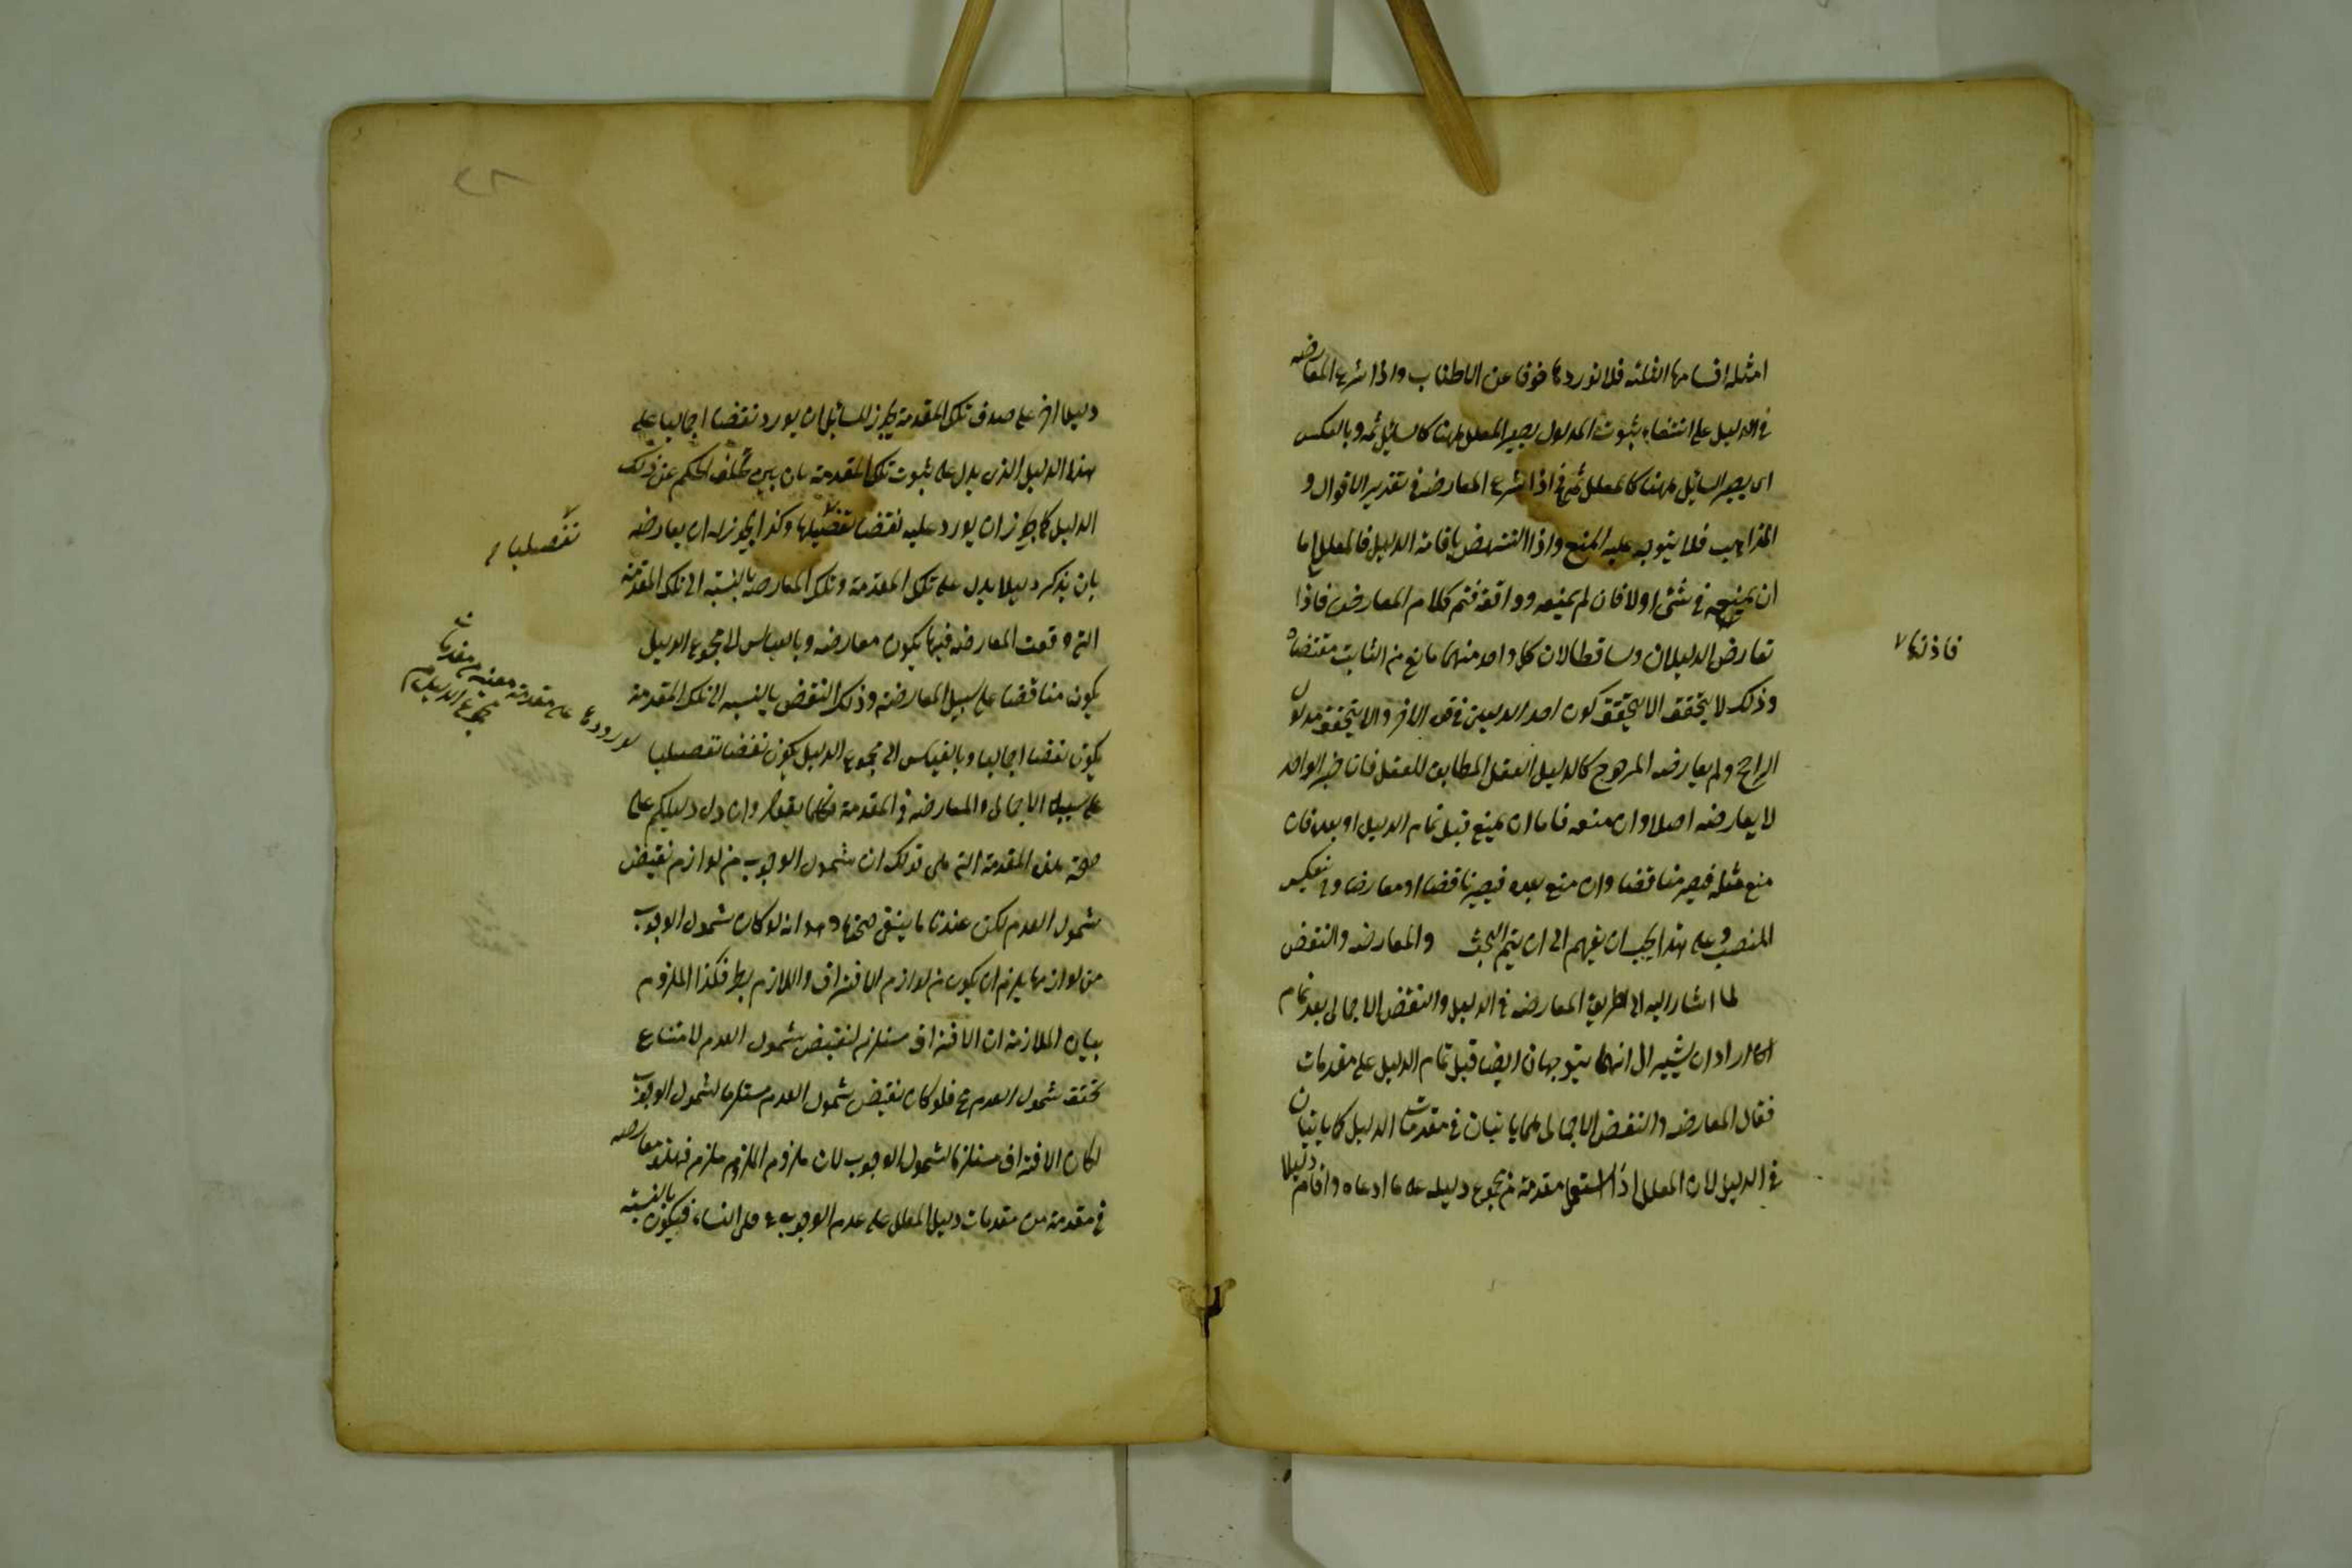 امثله اقسامها الثلثه فلا نوردها خوفا عن الاطناب واذا شرع المعارضه
فى الدليل على انتفاء ثبوت المدلول يصير المعلل ههنا كالسائل ثمه وبالعكس
اى يصير السائل ههنا كالمعلل ثمه فاذا شرع المعارضه فى تقرير الاقوال و
المذاهب فلا يتوجه عليه المنع واذا انتهض باقامة الدليل فالمعلل اما
ان يمنعه فى شئ اولا فان لم يمنعه ووافقه فتم كلام المعارض فاذا
تعارض الدليلان وتساقطا لان كل واحد منهما مانع من الثابت مقتضاه
وذلك لا يتحقق الا بتحقق كون احد الدليلين فوق الاخر والا يتحقق مدلول
الراجح ولم يعارضه المرجوح كالدليل العقل المطابق للعقل فان خبر الواحد
لا يعارضه اصلا وان منعه فاما ان يمنع قبل تمام الدليل او بعده فان
منع قبله فيصير مناقضا وان منع بعده فيصير ناقضا او معارضا وينعكس
المنصب وعلى هذا يجب ان يفهم الى ان يتم البحث والمعارضه والنقض
لما اشار اليه الى طريق المعارضه فى الدليل والنقض الاجمالى بعد تمام
اراد ان يشير الى انهما يتوجهان ايضا قبل تمام الدليل على مقدمات
فقال المعارضه والنقض الاجمالى كما ياتيان فى مقدمات الدليل كما ياتيان
فى الدليل لان المعلل اذا استعمل مقدمة من مجموع دليله على ما ادعاه واقام دليلا
فاذنها
دليلا اخر على صدق تلك المقدمة يجوز للسائل ان يورد نقضا اجماليا على
هذا الدليل الذى يدل على ثبوت تلك المقدمة بان يبين تخلف الحكم عن ذلك
الدليل كما يجوز ان يورد عليه نقضا تفصيليا وكذا يجوز له ان يعارضه
بان يذكر دليلا يدل على تلك المقدمة وتلك المعارضة بالنسبة الى تلك المقدمة
التى وقعت المعارضه فيها يكون معارضه وبالقياس الى مجموع الدليل
يكون مناقضا على سبيل المعارضة وذلك النقض بالنسبه الى تلك المقدمة
يكون نقضا اجماليا وبالقياس الى مجموع الدليل يكون نقضا تفصيليا
على سبيل الاجمالى والمعارضه فى المقدمة فكما يقول وان دل دليلكم على
صحة هذه المقدمة التى هى قولك ان شمول الوجوب من لوازم نقيض
شمول العدم لكن عندنا ما ينفى صحتها وهو انه لو كان شمول الوجوب
من لوازمها يلزم ان يكون من لوازم الافتراق واللازم بط فكذا الملزوم
بيان الملازمة ان الافتراق مستلزم لنقيض شمول العدم لامتناع
تحقق شمول العدم مع فلو كان نقيض شمول العدم مستلزما لشمول الوجوب
لكان الافتراق مستلزما لشمول الوجوب لان ملزوم الملزوم ملزم فهذه معارضه
فى مقدمة من مقدمات دليل المعلل على عدم الوجوب على النساء فيكون بالنسبة
تفصيليا
لورودها على مقدمة معينه من مقدمات
مجموع الدليل
٢٨